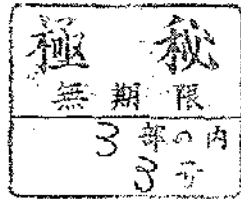 極秘
無期限
3部の内
3号